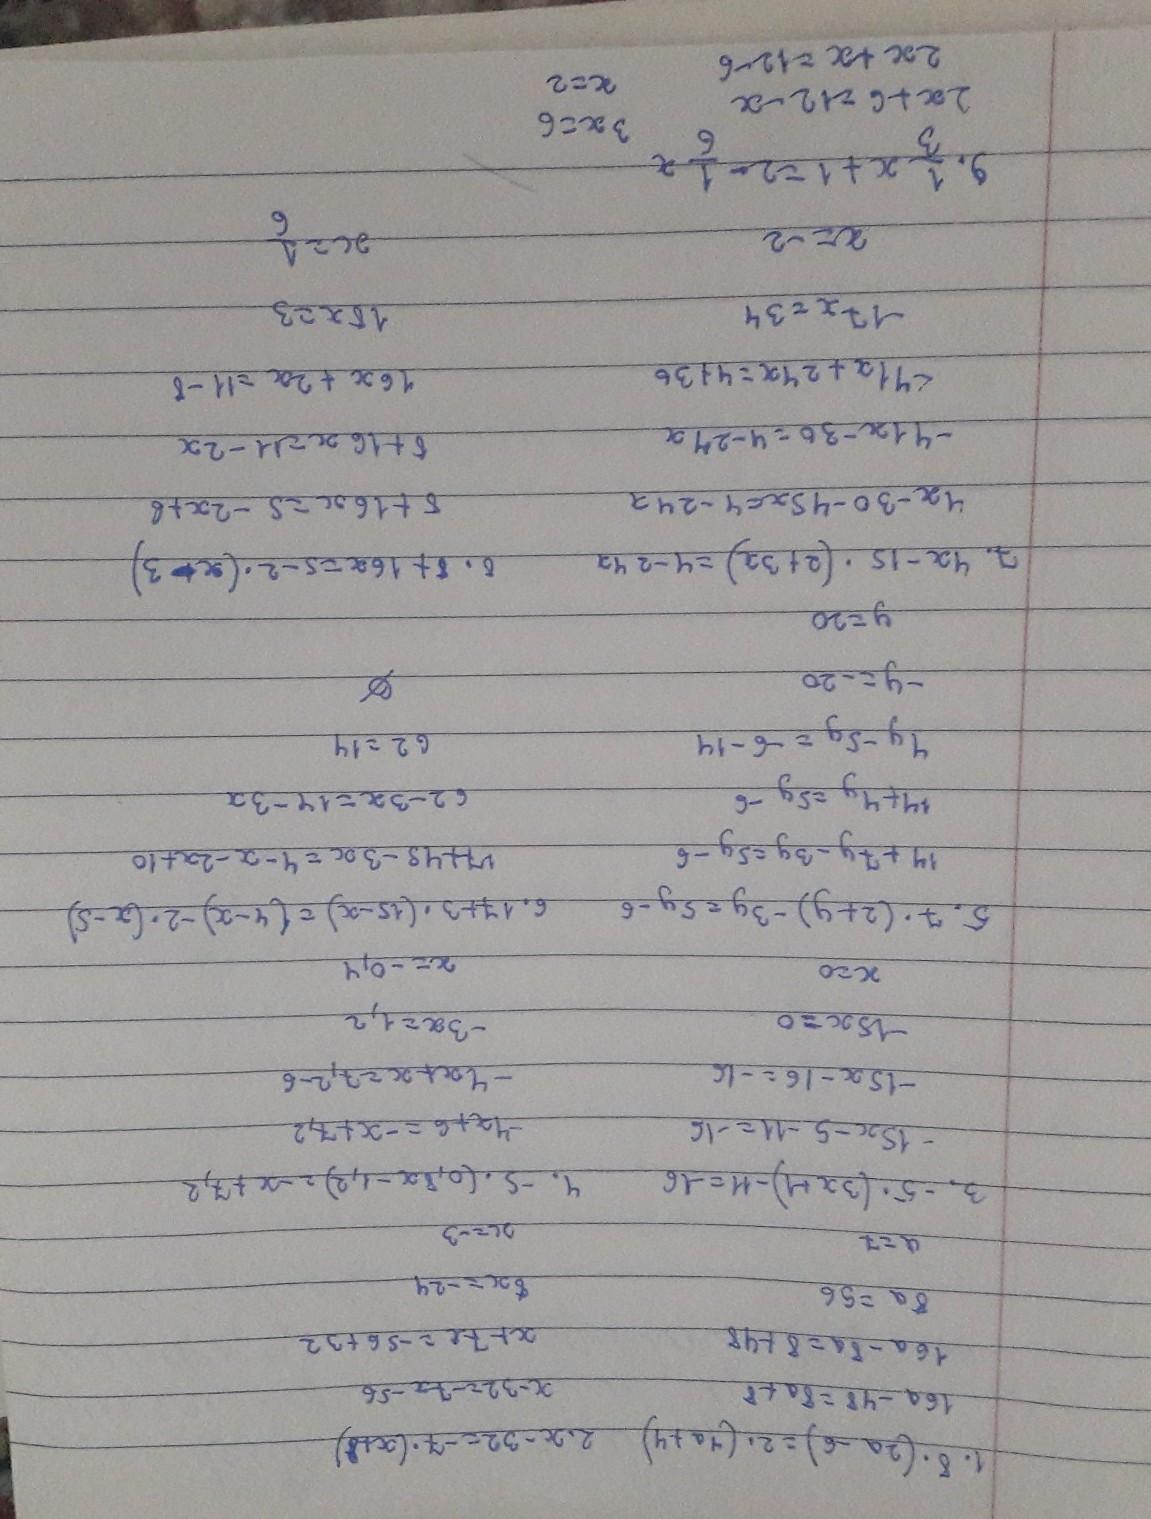 1. 8·(2a-6)=2·(4a+4)
16a-48=8a+8
16a-8a=8+48
8a=56
a=7
2. x-32=-7·(x+8)
x-32=-7x-56
x+7x=-56+32
8x=-24
x=-3
3. -5·(3x+1)-11=-16
-15x-5-11=-16
-15x-16=-16
-15x=0
x=0
4. -5·(0,8x-1,2)=-x+7,2
-4x+6=-x+7,2
-4x+x=7,2-6
-3x=1,2
x=-0,4
5. 7·(2+y)-3y=5y-6
14+7y-3y=5y-6
14+4y=5y-6
4y-5y=-6-14
-y=-20
y=20
6. 17+3·(15-x)=(4-x)-2·(x-5)
17+45-3x=4-x-2x+10
62-3x=14-3x
62=14
∅
7. 4x-15·(2+3x)=4-24x
4x-30-45x=4-24x
-41x-30=4-24x
-41x+24x=4+30
-17x=34
x=-2
8. 8+16x=5-2·(x-3)
8+16x=5-2x+6
8+16x=11-2x
16x+2x=11-8
18x=3
x=1/6
9. 1/3x+1=2-1/6x
2x+6=12-x
2x+x=12-6
3x=6
x=2